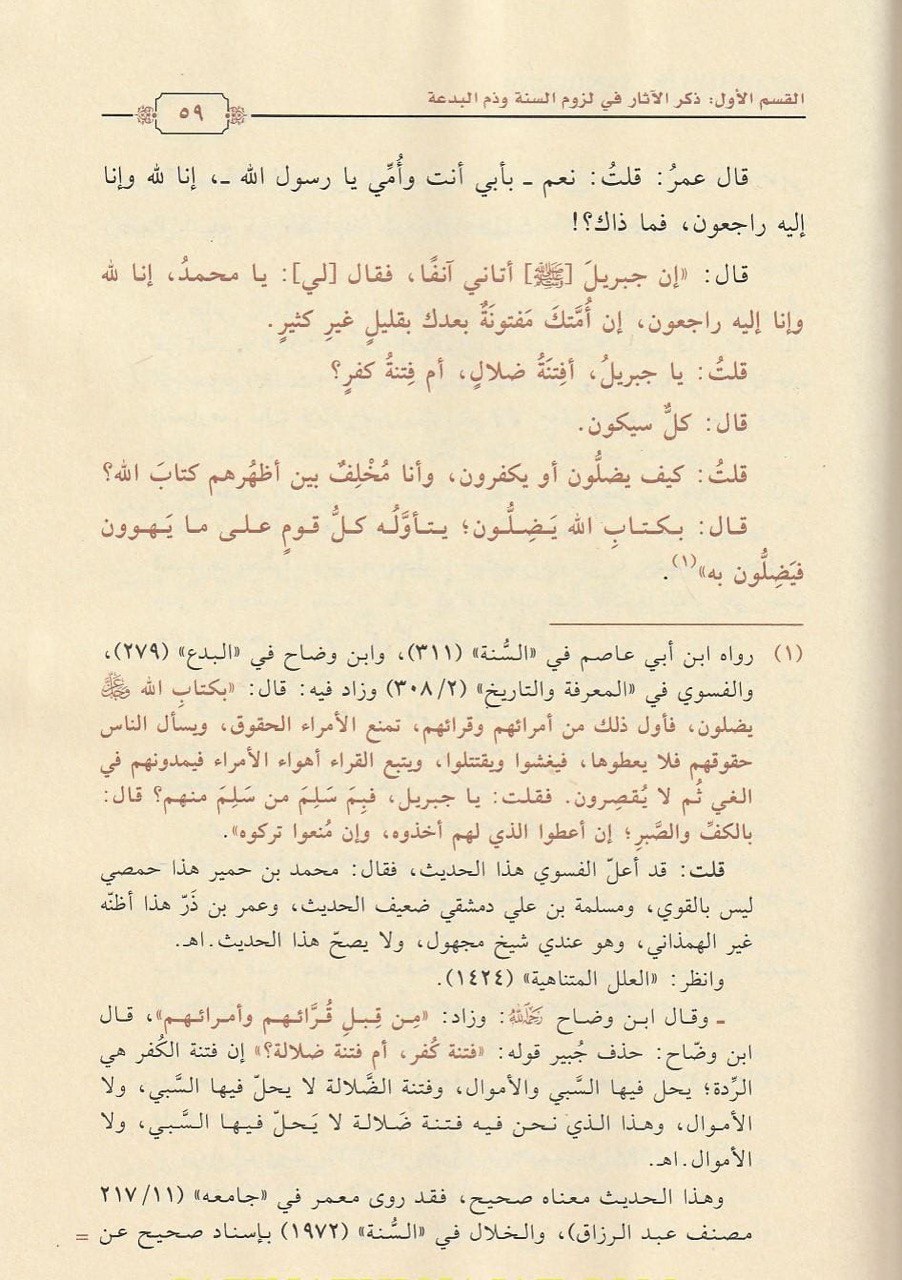 القسم الأول: ذكر الآثار في لزوم السنة وذم البدعة
٥٩
قال عمرُ: قلتُ: نعم ـ بأبي أنت وأُمِّي يا رسول الله ـ، إنا لله وإنا
إليه راجعون، فما ذاك؟!
قال: «إن جبريلَ [ﷺ] أتاني آنفًا، فقال [لي]: يا محمدُ، إنا لله
وإنا إليه راجعون، إن أُمَّتكَ مَفتونَةٌ بعدك بقليلٍ غيرِ كثيرٍ.
قلتُ: يا جبريلُ، أفِتنَةُ ضلالٍ، أم فِتنةُ كفرٍ؟
قال: كلٌّ سيكون.
قلتُ: كيف يضلُّون أو يكفرون، وأنا مُخْلِفٌ بين أظهُرهم كتابَ الله؟
قال: بكتابِ الله يَضِلُّون؛ يتأوَّلُه كلُّ قومٍ على ما يَهوون
فيَضِلُّون به»(١).
(١) رواه ابن أبي عاصم في «السُّنة» (٣١١)، وابن وضاح في «البدع» (٢٧٩)،
والفسوي في «المعرفة والتاريخ» (٣٠٨/٢) وزاد فيه: قال: «بكتابِ الله
يضلون، فأول ذلك من أمرائهم وقرائهم، تمنع الأمراء الحقوق، ويسأل الناس
حقوقهم فلا يعطوها، فيغشوا ويقتتلوا، ويتبع القراء أهواء الأمراء فيمدونهم في
الغي ثُم لا يُقصِرون. فقلت: يا جبريل، فبِمَ سَلِمَ من سَلِمَ منهم؟ قال:
بالكفِّ والصَّبرِ؛ إن أعطوا الذي لهم أخذوه، وإن مُنعوا تركوه».
قلت: قد أعلّ الفسوي هذا الحديث، فقال: محمد بن حمير هذا حمصي
ليس بالقوي، ومسلمة بن علي دمشقي ضعيف الحديث، وعمر بن ذَرّ هذا أظنّه
غير الهمذاني، وهو عندي شيخ مجهول، ولا يصحّ هذا الحديث.اهـ.
وانظر: «العلل المتناهية» (١٤٢٤).
ـ وقال ابن وضاح رَحِمَهُ اللهُ: وزاد: «مِن قِبلِ قُرَّائهم وأمرائهم»، قال
ابن وضّاح: حذف جُبير قوله: «فتنة كُفر، أم فتنة ضلالة؟» إن فتنة الكُفر هي
الرِّدة؛ يحل فيها السَّبي والأموال، وفتنة الضَّلالة لا يحلّ فيها السَّبي، ولا
الأموال، وهذا الذي نحن فيه فتنة ضَلالة لا يَحلّ فيها السَّبي، ولا
الأموال.اهـ.
وهذا الحديث معناه صحيح، فقد روى معمر في «جامعه» (٢١٧/١١
مصنف عبد الرزاق)، والخلال في «السُّنة» (١٩٧٢) بإسناد صحيح عن =